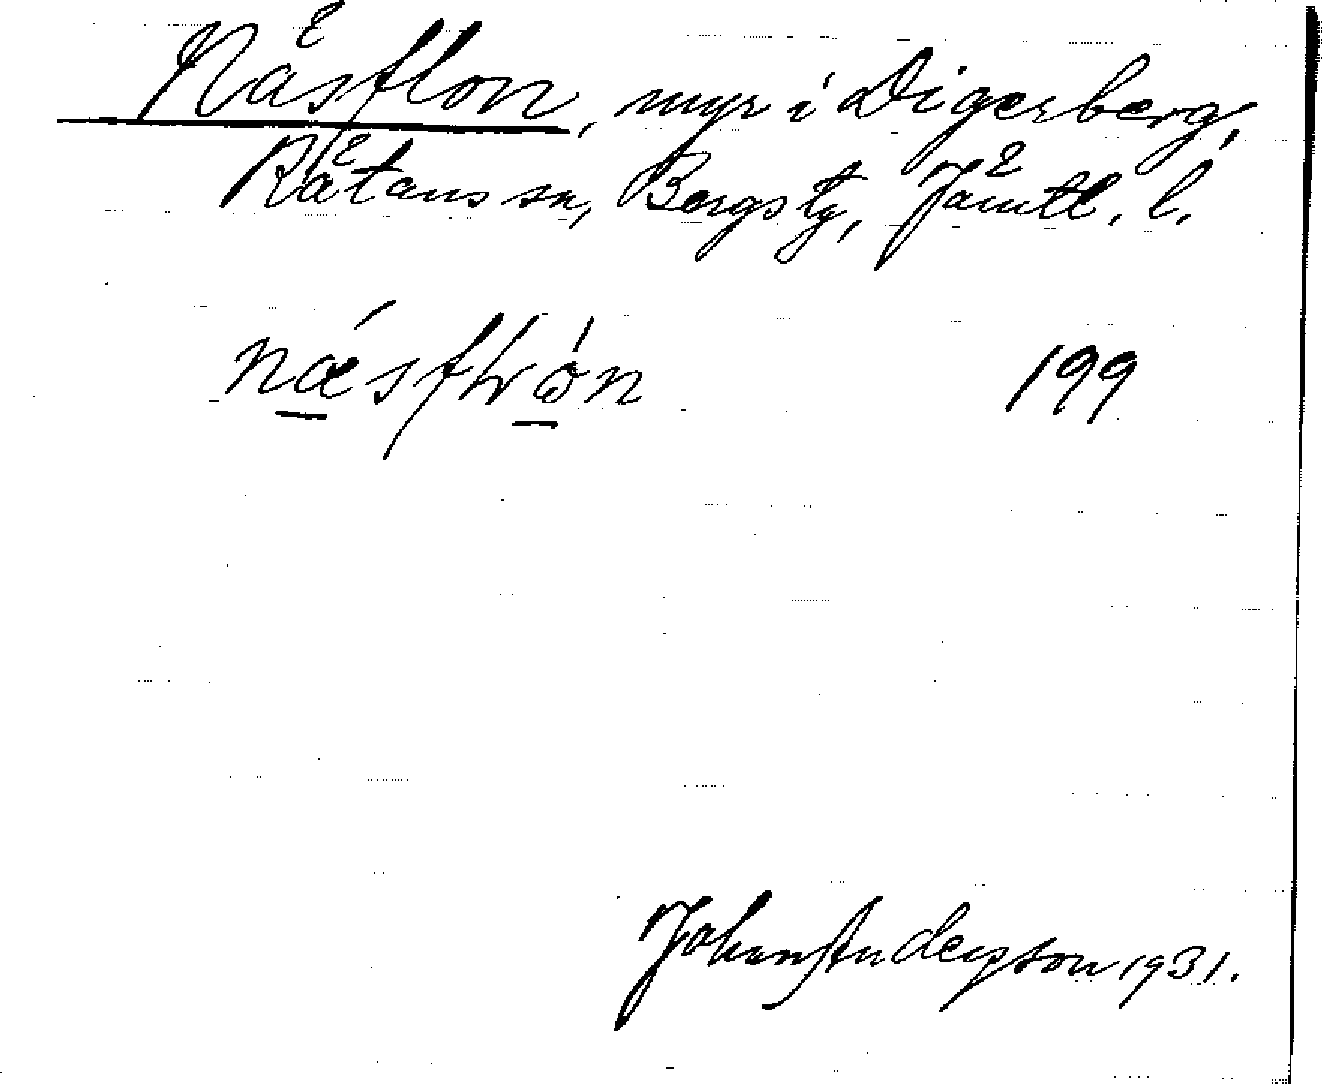 Näsflon, myr i Digerberg,
Rätans sn, Bergs tg, Jämtl. l.
næ´sftrω´n 199
Johan Anderzton 1931.